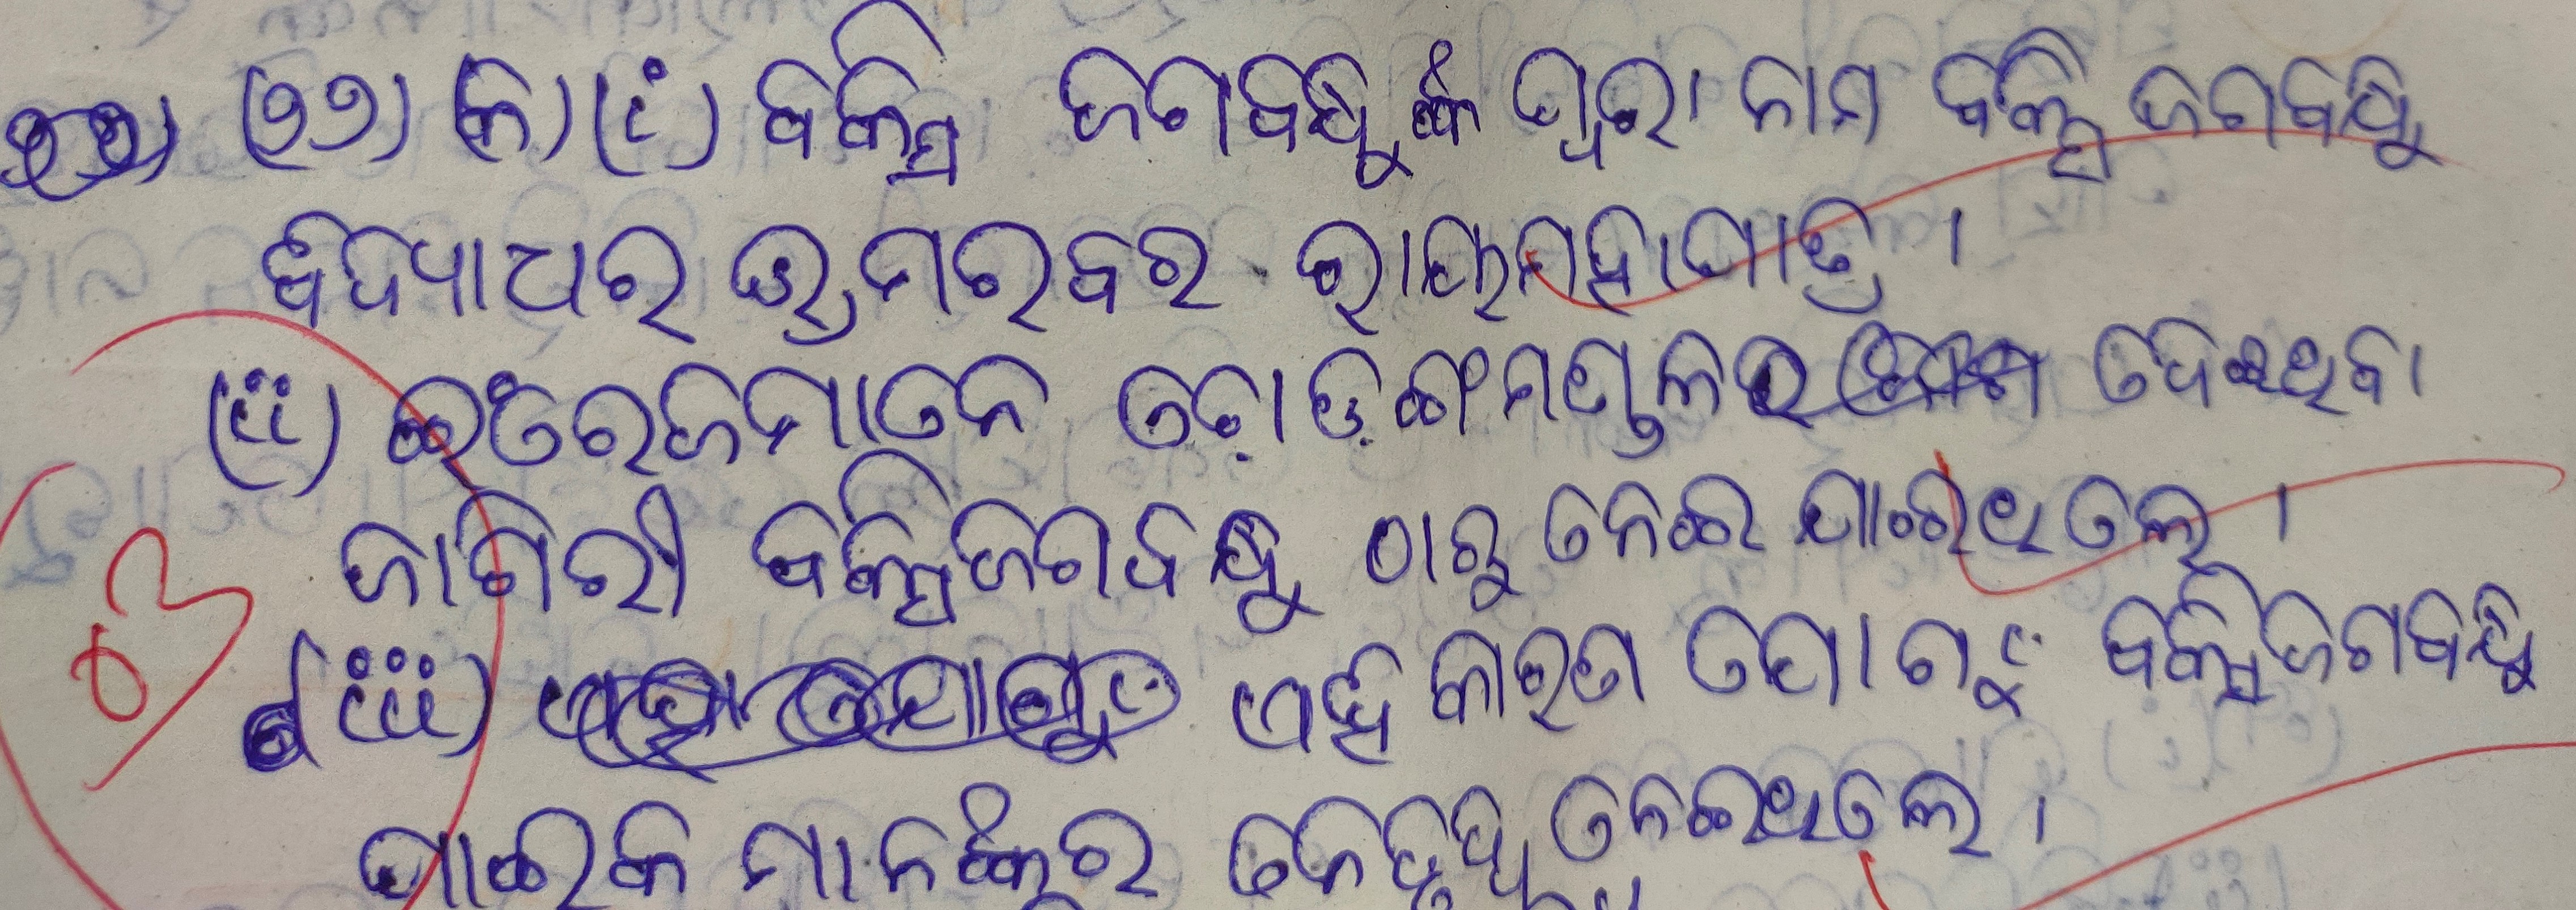 (୨୨) (କ) (i) ବକ୍ସି ଜଗବନ୍ଧୁଙ୍କ ପୁରା ନାମ ବକ୍ସି ଜଗବନ୍ଧୁ
ବିଦ୍ୟାଧର ଭ୍ରମରବର ରାୟମହାପାତ୍ର ।
(ii) ଇଂରେଜମାନେ ରୋଡ଼ଙ୍ଗମଣ୍ଡଳର ଦେଇଥିବା
ଜାଗିରୀ ବକ୍ସିଜଗବନ୍ଧୁ ଠାରୁ ନେଇ ଯାଇଥିଲେ ।
(iii) ଏହି କାରଣ ଯୋଗୁଁ ବକ୍ସିଜଗବନ୍ଧୁ
ପାଇକ ମାନଙ୍କର ନେତୃତ୍ୱ ନେଇଥିଲେ ।